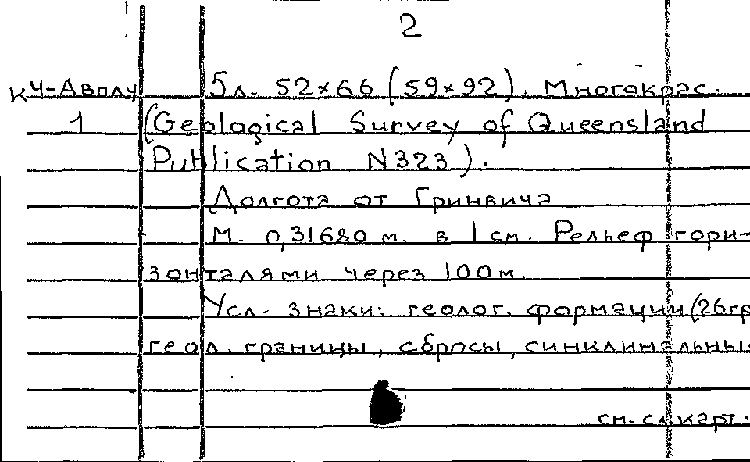 2
КЧ-Австл 5л. 52×66 (59×92). Многокрас.
1 (Geological Survey of Queensland
Publication N323).
Долгота от Гринвича
М. 0,31680 м. в 1 см. Рельеф гори-
зонталями через 100м.
Усл. знаки: геолог. формации (26гр
геол. границы, сбросы, синклинальны
см. сл. карт.